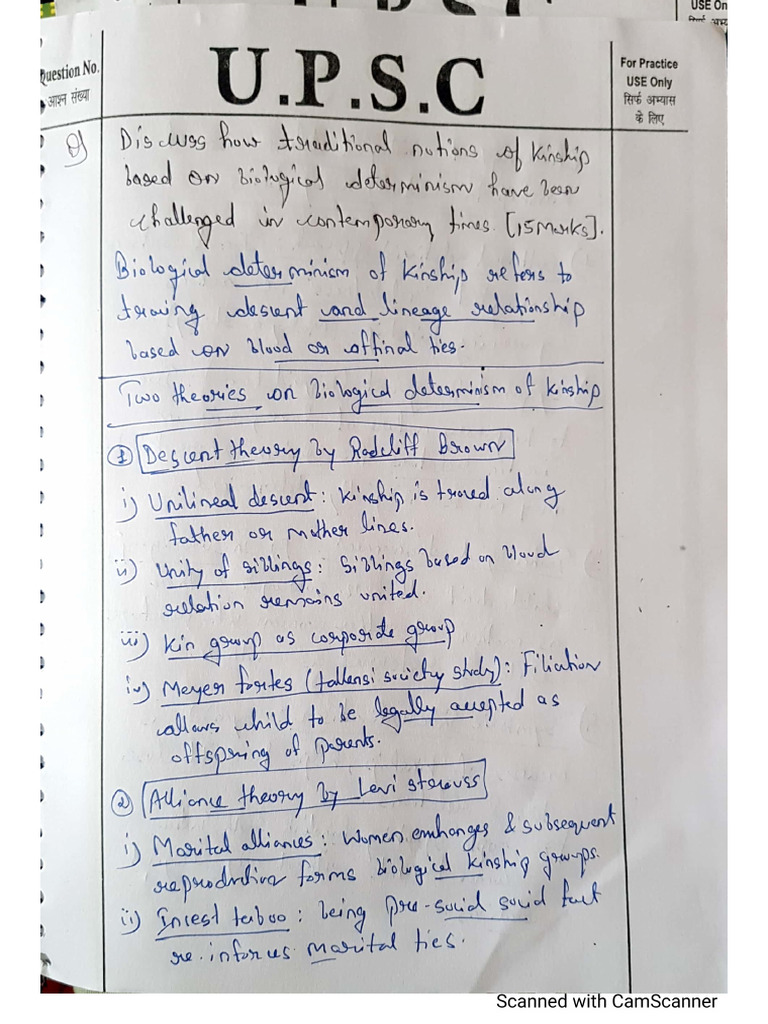 USE On
Question No.
प्रश्न संख्या
U.P.S.C
For Practice
USE Only
सिर्फ अभ्यास
के लिए
Q) Discuss how traditional notions of kinship
based on Biological determinism have been
challenged in contemporary times. [15 Marks].
Biological determinism of kinship refers to
tracing descent and lineage relationship
based on blood or affinal ties.
Two theories on Biological determinism of kinship
① Descent theory by Radcliff Brown
i) Unilineal descent: kinship is traced along
father or mother lines.
ii) Unity of siblings: Siblings based on blood
relation remains united.
iii) Kin group as corporate group
iv) Meyer fortes (tallensi society study): Filiation
allows child to be legally accepted as
offspring of parents.
② Alliance theory by Levi strauss
i) Marital alliances: Women exchanges & subsequent
reproduction forms biological kinship groups.
ii) Incest taboo: being pre-social social fact
re-inforces marital ties.
Scanned with CamScanner